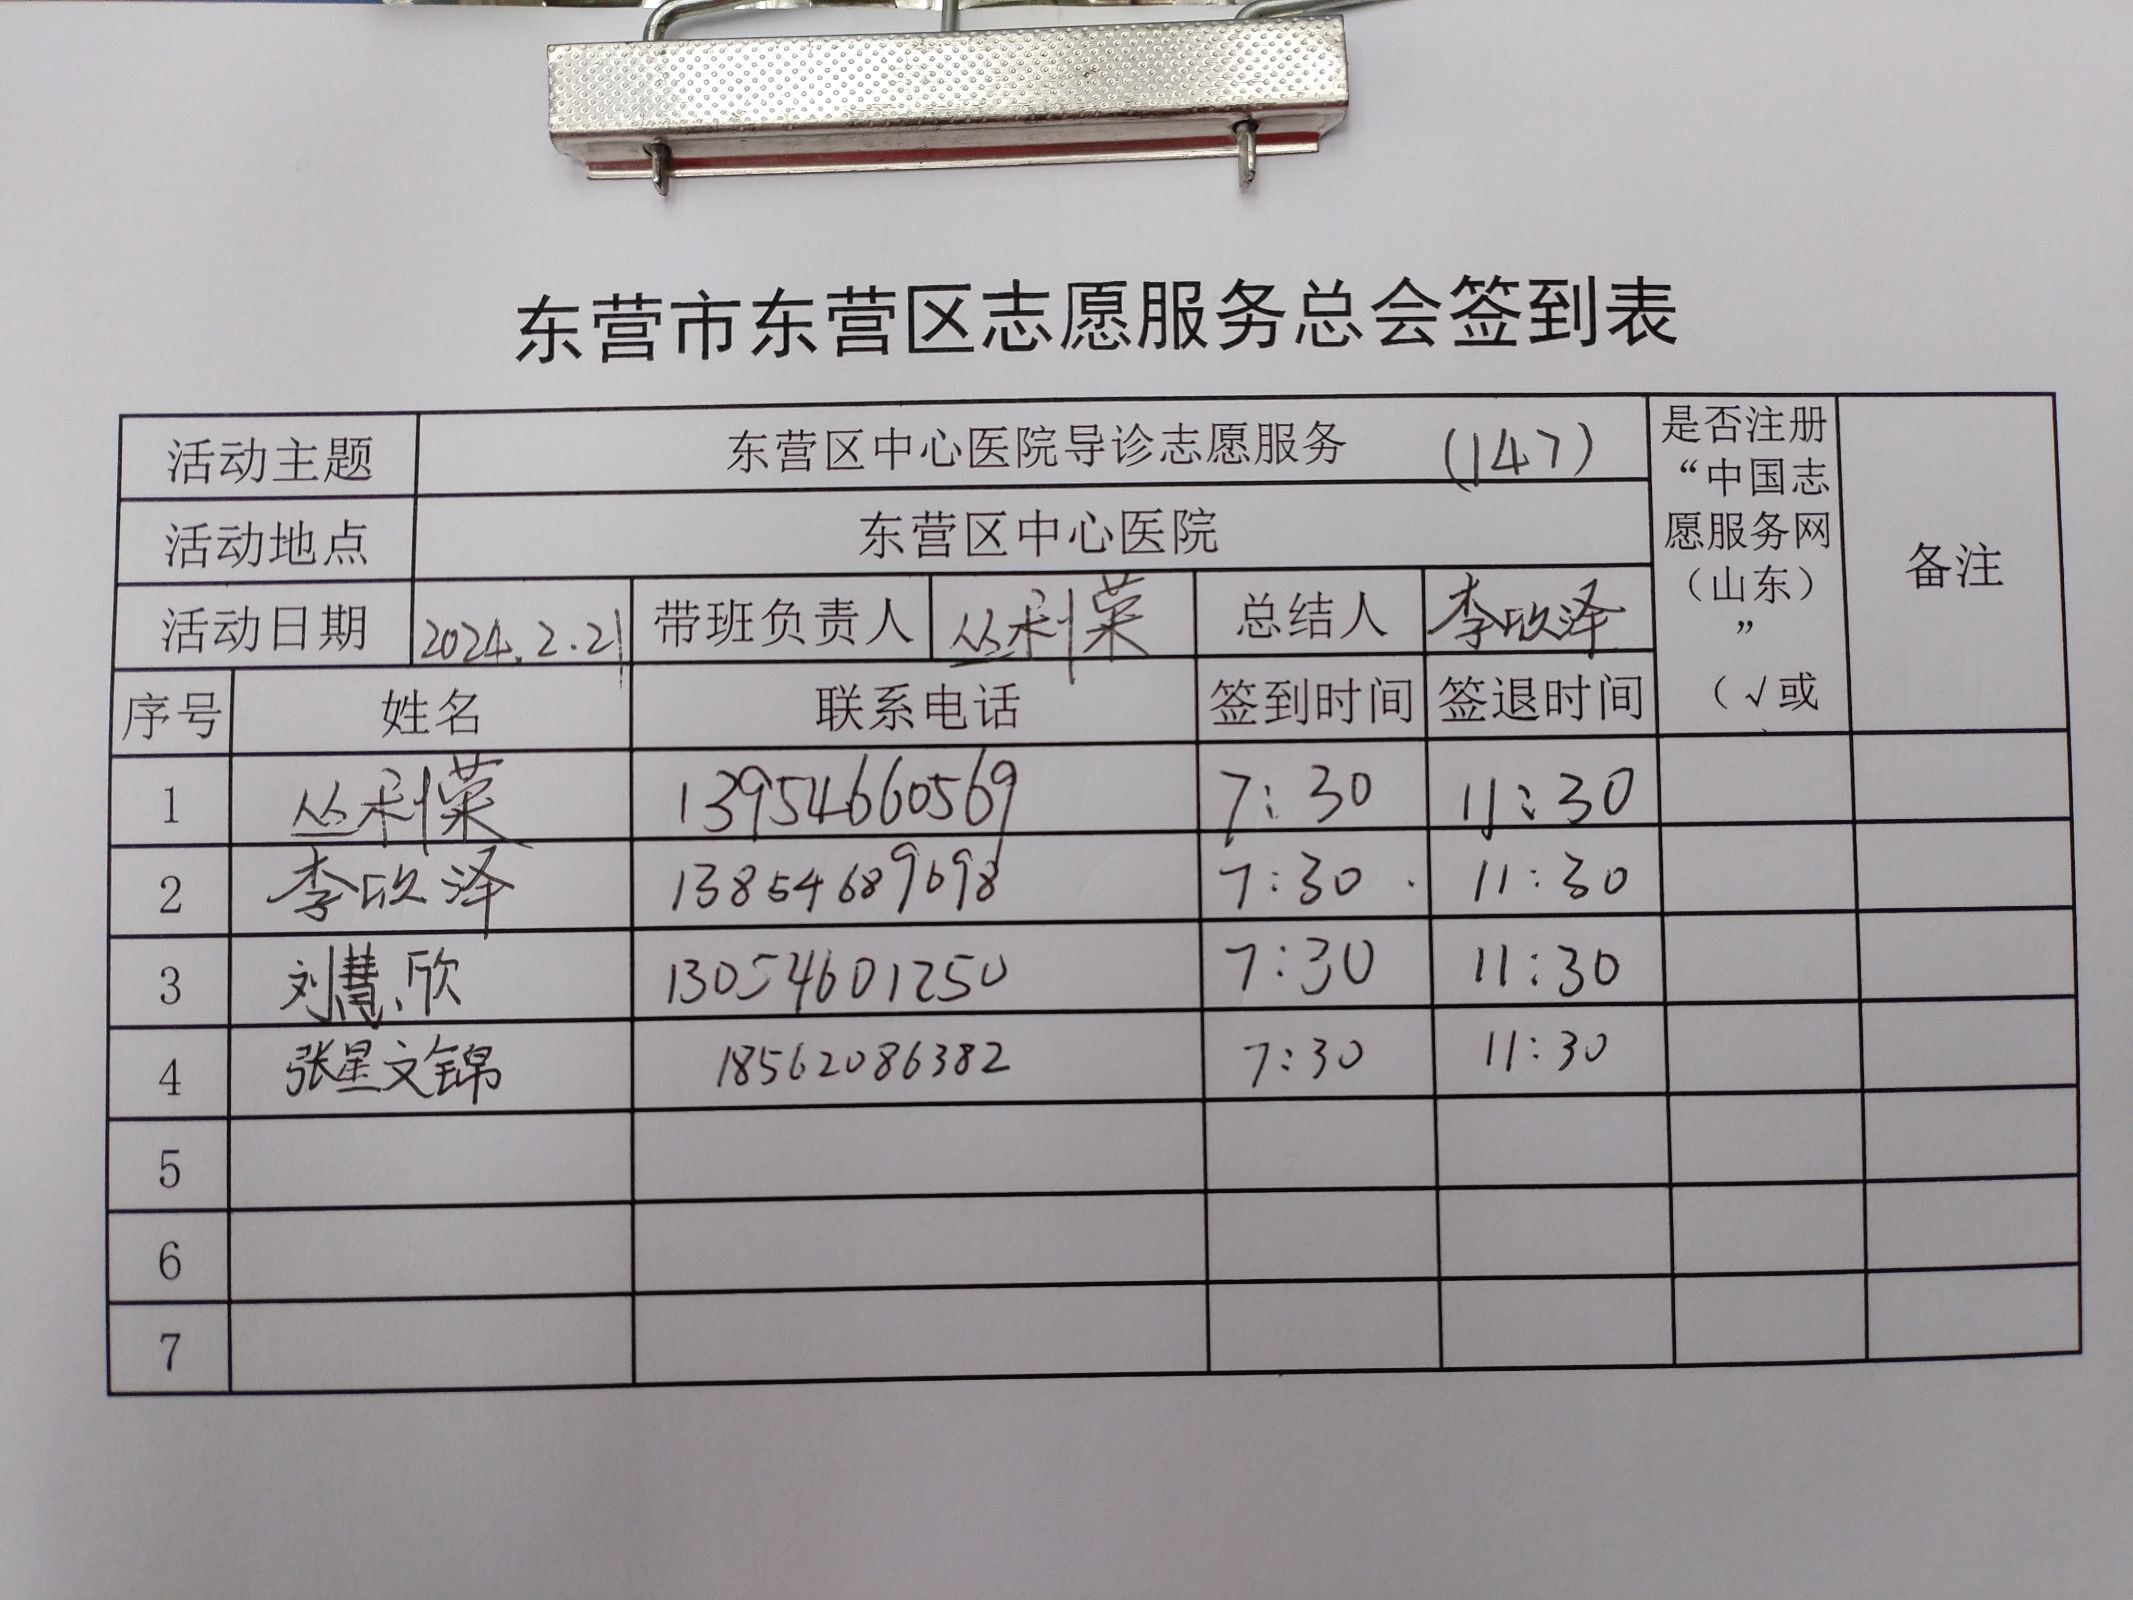 东营市东营区志愿服务总会签到表
活动主题 东营区中心医院导诊志愿服务 (147)
活动地点 东营区中心医院
活动日期 2024.2.21 带班负责人 丛利荣 总结人 李欣泽
是否注册
“中国志
愿服务网
（山东）
”
（√或
备注
序号 姓名 联系电话 签到时间 签退时间
1 丛利荣 13954660569 7:30 11:30
2 李欣泽 13854689698 7:30 11:30
3 刘慧欣 13054601250 7:30 11:30
4 张星文锦 18562086382 7:30 11:30
5
6
7